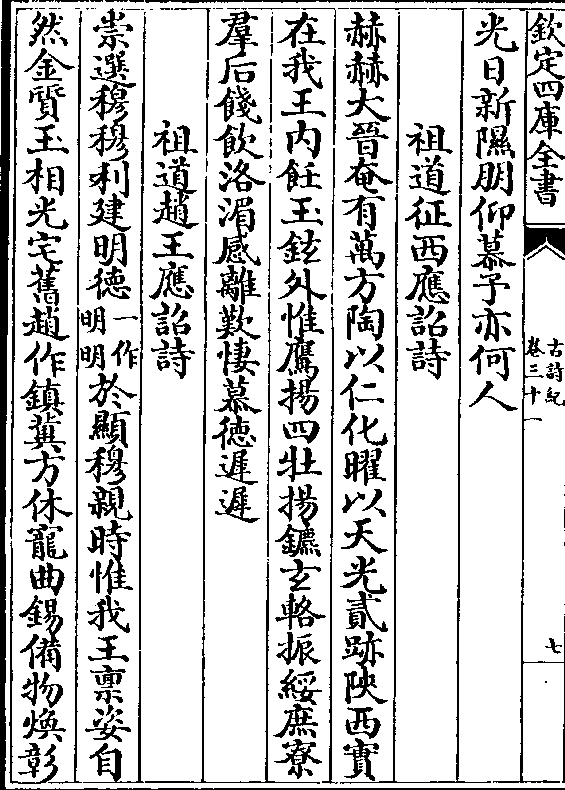 欽定四庫全書
古詩紀
卷三十一
七
光日新隰朋仰慕予亦何人
祖道征西應詔詩
赫赫大晉奄有萬方陶以仁化曜以天光貳跡陜西實
在我王内飪玉鉉外惟鷹揚四牡揚鑣玄輅振綏庶寮
羣后餞飲洛湄感離歎悽慕德遲遲
祖道趙王應詔詩
崇選穆穆利建明德一作明明於顯穆親時惟我王禀姿自
然金質玉相光宅舊趙作鎮冀方休寵曲錫備物煥彰